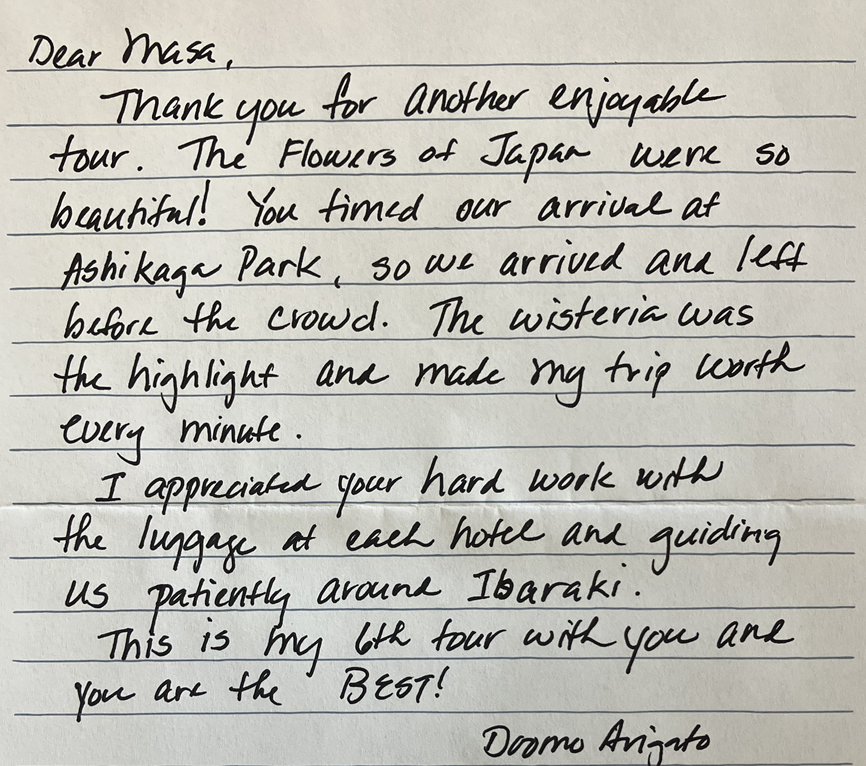 Dear Masa,
Thank you for another enjoyable
tour. The Flowers of Japan were so
beautiful! You timed our arrival at
Ashikaga Park, so we arrived and left
before the crowd. The wisteria was
the highlight and made my trip worth
every minute.
I appreciated your hard work with
the luggage at each hotel and guiding
us patiently around Ibaraki.
This is my 6th tour with you and
you are the BEST!
Doomo Arigato